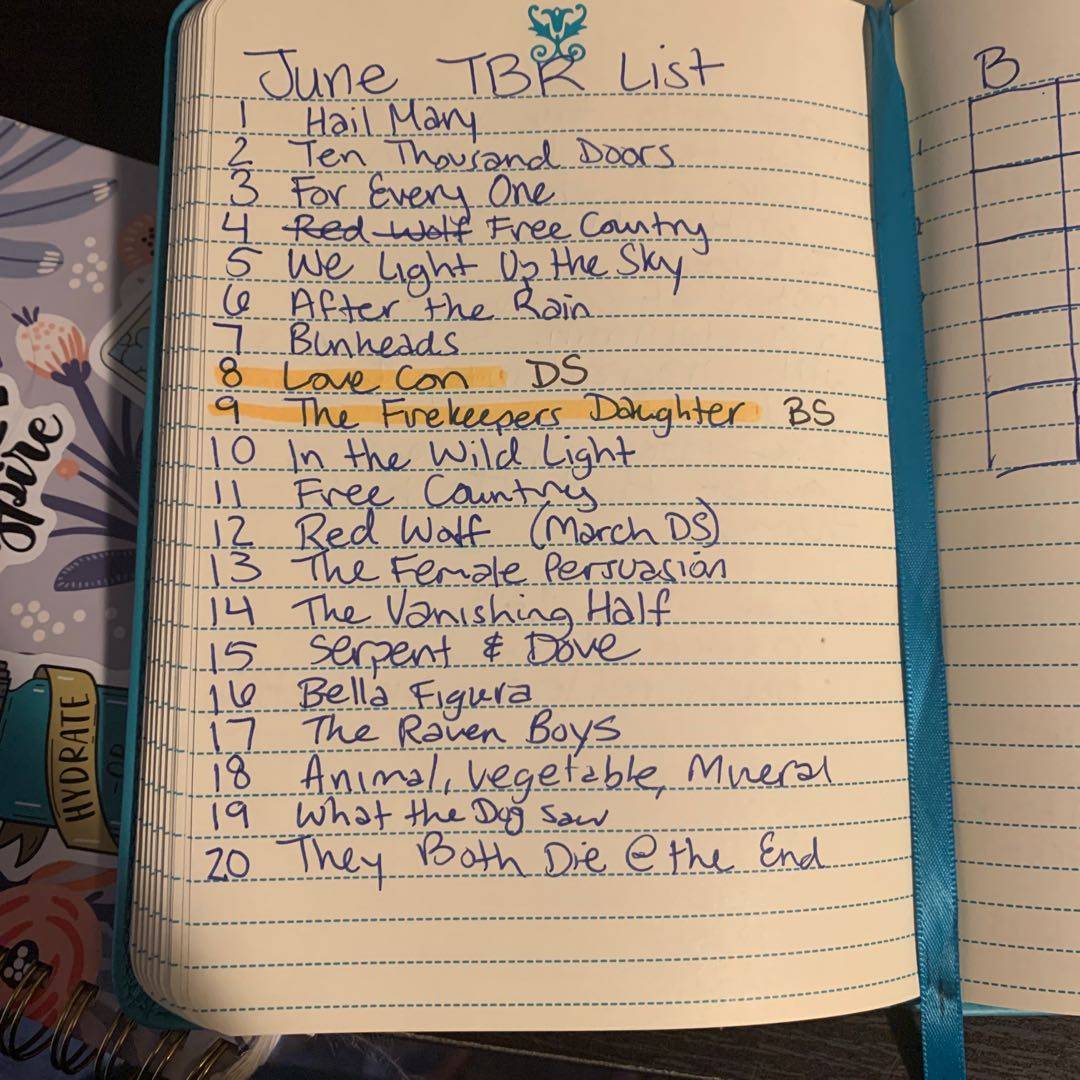 June TBR List
1 Hail Mary
2 Ten Thousand Doors
3 For Every One
4 Red Wolf Free Country
5 We Light Up the Sky
6 After the Rain
7 Bunheads
8 Love Con DS
9 The Firekeepers Daughter BS
10 In the Wild Light
11 Free Country
12 Red Wolf (March DS)
13 The Female Persuasion
14 The Vanishing Half
15 Serpent & Dove
16 Bella Figura
17 The Raven Boys
18 Animal, Vegetable, Mineral
19 What the Dog Saw
20 They Both Die @ the End
B
spire
HYDRATE
-OR-